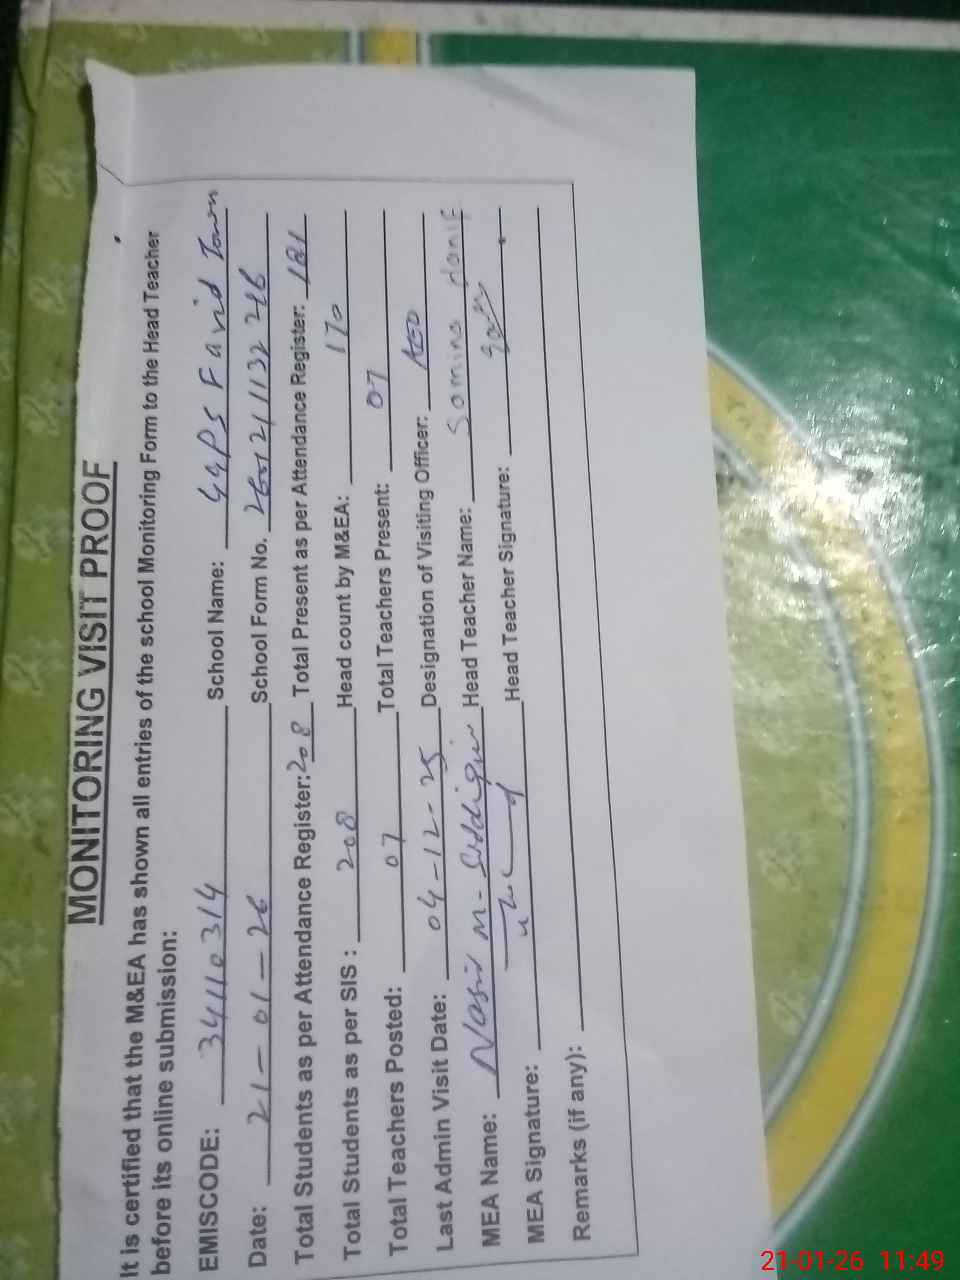 MONITORING VISIT PROOF
It is certified that the M&EA has shown all entries of the school Monitoring Form to the Head Teacher
before its online submission:
EMISCODE: 34110314 School Name: GGPS Farid Town
Date: 21-01-26 School Form No. 2601211132246
Total Students as per Attendance Register: 208 Total Present as per Attendance Register: 181
Total Students as per SIS : 208 Head count by M&EA: 170
Total Teachers Posted: 07 Total Teachers Present: 07
Last Admin Visit Date: 04-12-25 Designation of Visiting Officer: AEO
MEA Name: Nasir M- Siddiqui Head Teacher Name: Samina Hanif
MEA Signature: Head Teacher Signature:
Remarks (if any):
21-01-26 11:49